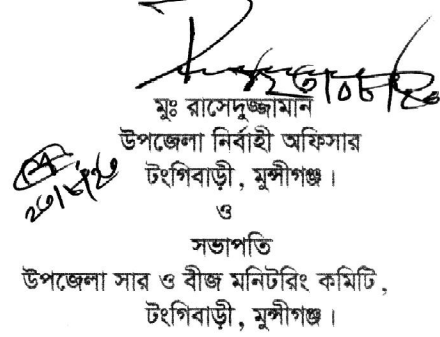 মুঃ রাসেদুজ্জামান
উপজেলা নির্বাহী অফিসার
টংগিবাড়ী, মুন্সীগঞ্জ।
ও
সভাপতি
উপজেলা সার ও বীজ মনিটরিং কমিটি,
টংগিবাড়ী, মুন্সীগঞ্জ।